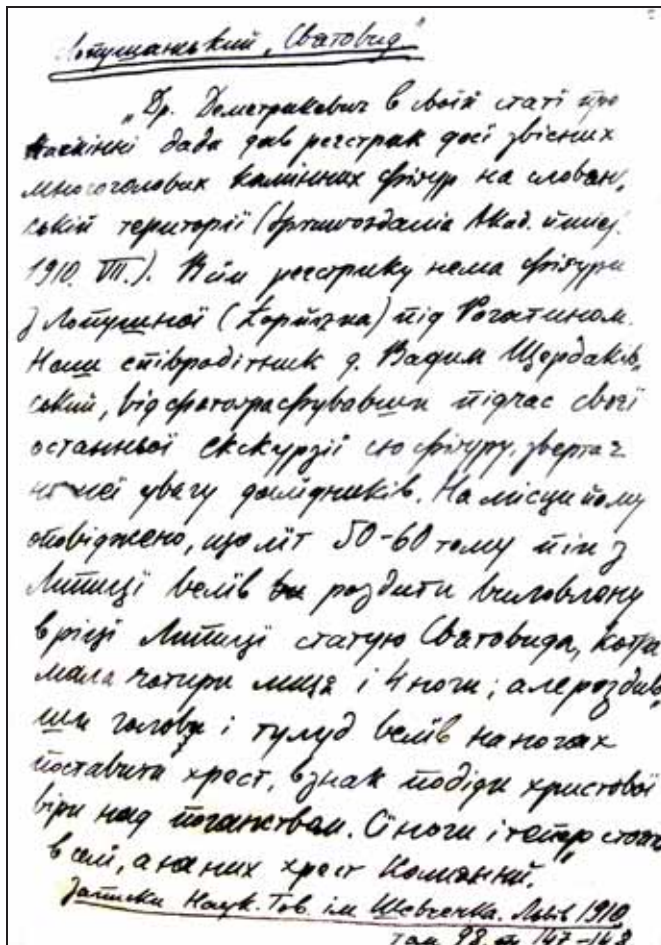 Лопушанський „Святовид"
„Др. Деметрикевич в своїй статі про
камінні баби дав реєстрик досі звісних
многоголових камінних фігур на словян,
ській території (Справоздання Акад. Умієј.
1910. VII.). В йім реєстрику нема фігури
з Лопушної (Лопушна) під Рогатином.
Наш співробітник д. Вадим Щербаків„
ський, відфотографувавши підчас свої
останньої екскурзії сю фігуру, звертає
на неї увагу дослідників. На місци йому
оповіджено, що літ 50-60 тому піп з
Липиці велів розбити виловлену
в ріці Липиці статую Святовида, котра
мала чотири лиця і 4 ноги; але розбив„
ши голову і тулуб велів на ногах
поставити хрест, взнак побіди христової
віри над поганством. Сі ноги і тепер стоять
в селі, а на них хрест камянний.
Записки Наук. Тов. ім Шевченка. Львів 1910
том 98 ст 147-148